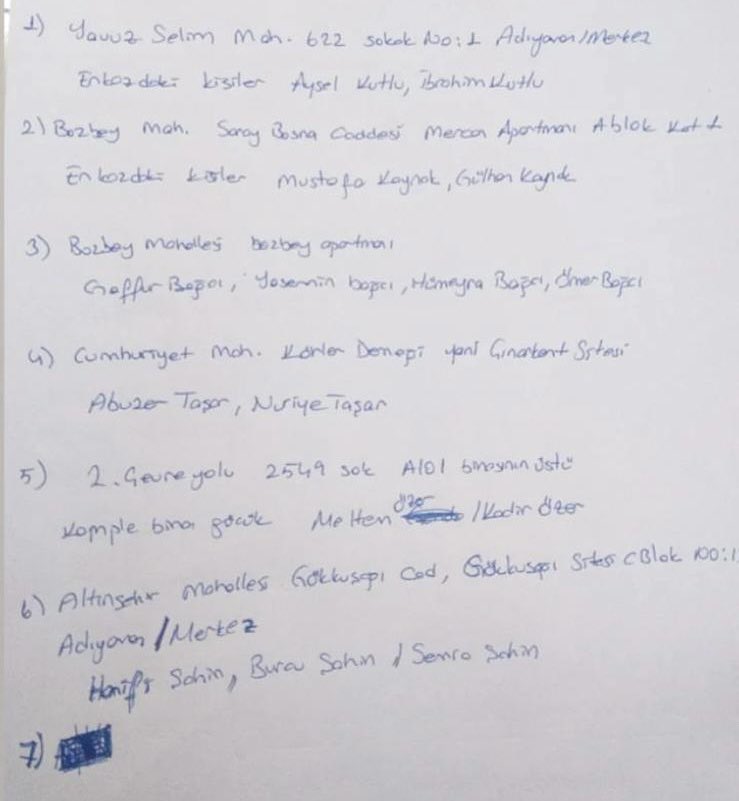 1) Yavuz Selim Mah. 622 sokak No:1 Adıyaman/Merkez
Enkazdaki kişiler Aysel Kutlu, İbrahim Kutlu
2) Bozbey Mah. Saray Bosna Caddesi Mercan Apartmanı A blok Kat 1
Enkazdaki kişiler Mustafa Kaynak, Gülhan Kaynak
3) Bozbey Mahallesi bozbey apartmanı
Gaffur Bağcı, Yasemin bağcı, Hümeyra Bağcı, Ömer Bağcı
4) Cumhuriyet Mah. Derneği yani Çınarkent Sitesi
Abuzer Taşar, Nuriye Taşar
5) 2. Çevre yolu 2549 sok A101 binasının üstü
Komple bina göçük Meltem Özer /Kadir Özer
6) Altınşehir Mahallesi Gökkuşağı Cad, Gökkuşağı Sitesi C Blok no:1
Adıyaman / Merkez
Şahin, Burcu Şahin / Semra Şahin
7)